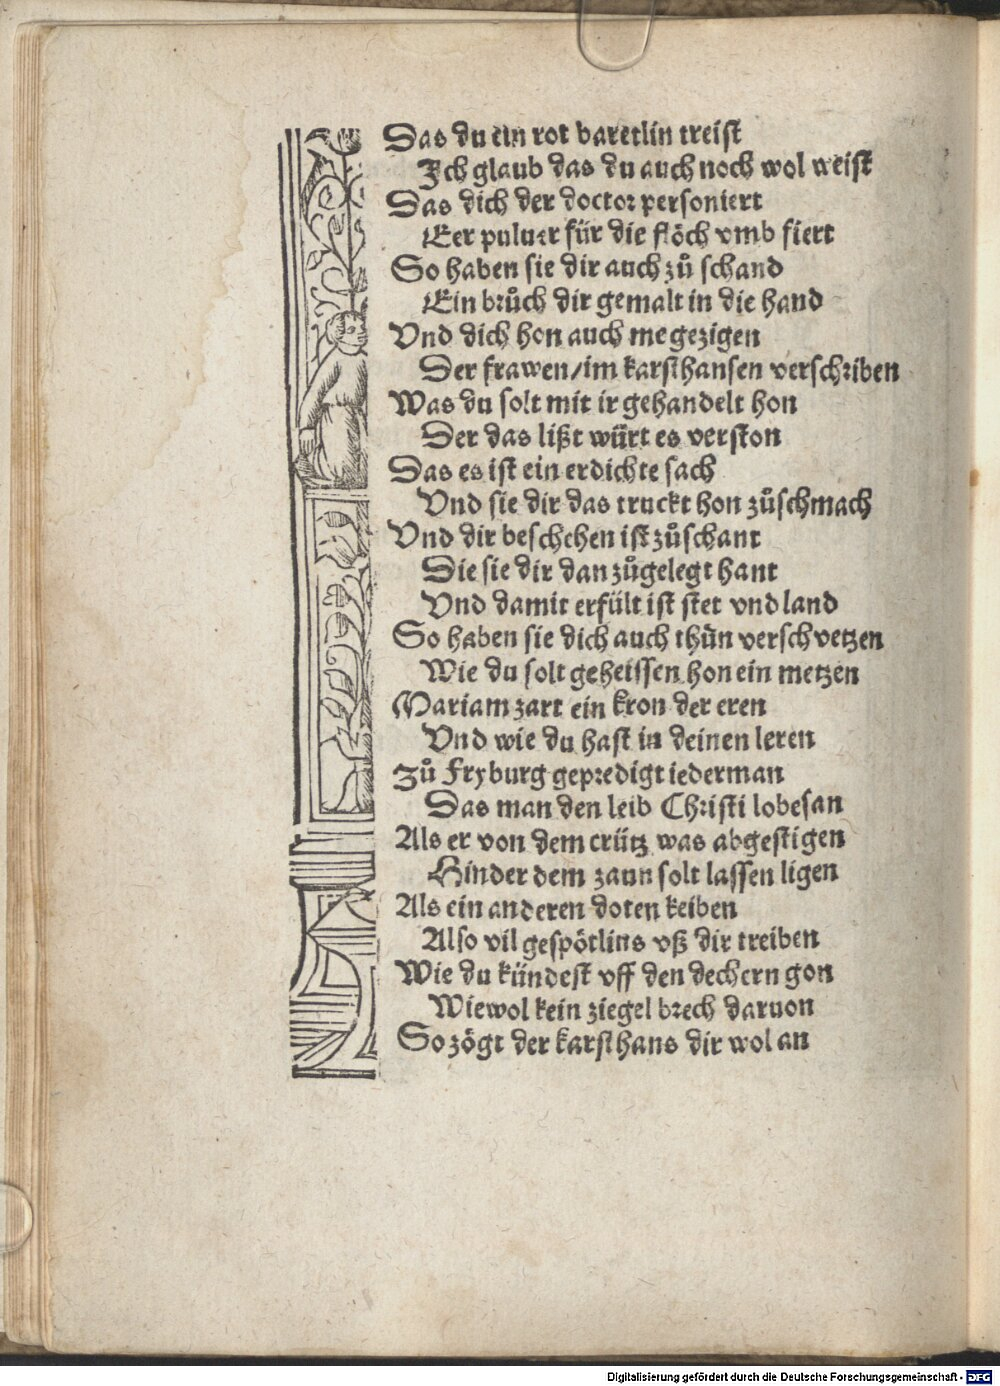 Das du ein rot baretlin treist
Ich glaub das du auch noch wol weist
Das dich der doctor personiert
Eer puluer für die flöch vmb fiert
So haben sie dir auch zů schand
Ein brůch dir gemalt in die hand
Vnd dich hon auch me gezigen
Der frawen/im karsthansen verschriben
Was du solt mit ir gehandelt hon
Der das lißt würt es verston
Das es ist ein erdichte sach
Vnd sie dir das truckt hon zůschmach
Vnd dir beschehen ist zůschant
Die sie dir dan zůgelegt hant
Vnd damit erfült ist stet vnd land
So haben sie dich auch thůn verschvetzen
Wie du solt geheissen hon ein metzen
Mariam zart ein kron der eren
Vnd wie du hast in deinen leren
Zů Fryburg geprediget iederman
Das man den leib Christi lobesan
Als er von dem crütz was abgestigen
Hinder dem zaun solt lassen ligen
Als ein anderen doten keiben
Also vil gespötlins vß dir treiben
Wie du kündest vff den dechern gon
Wiewol kein ziegel brech daruon
So zögt der karsthans dir wol an
Digitalisierung gefördert durch die Deutsche Forschungsgemeinschaft - DFG